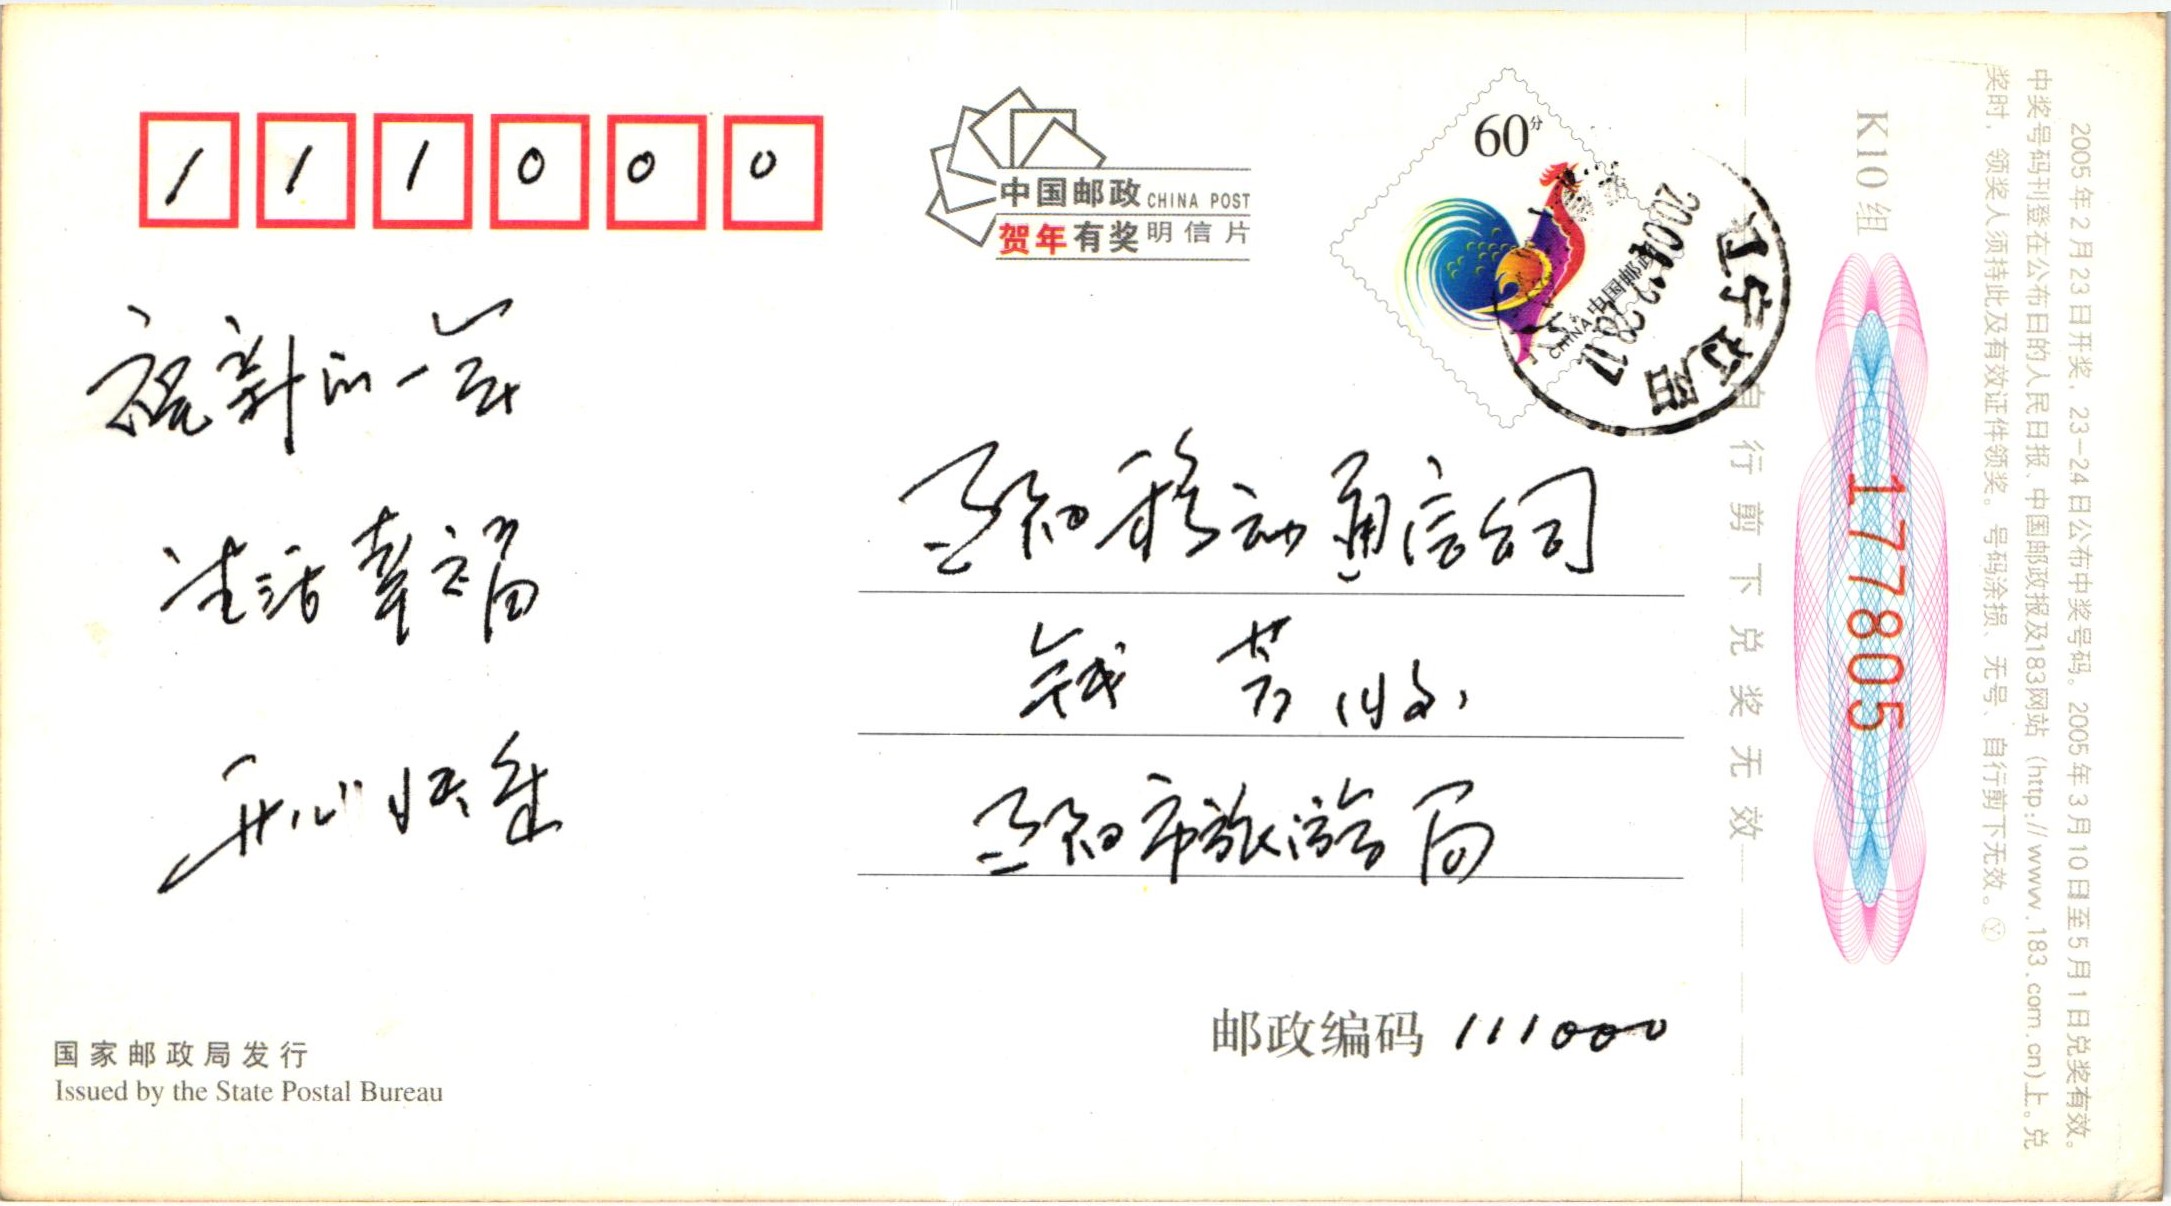 111000
中国邮政 CHINA POST
贺年有奖明信片
60分
中国邮政
CHINA
2004.12.28.17
辽宁辽阳
祝新的一年
生活幸福
开心快乐
辽阳移动通信公司
钱 芳(收)
辽阳市旅游局
邮政编码 111000
国家邮政局发行
Issued by the State Postal Bureau
自行剪下兑奖无效
K10组
177805
2005年2月23日开奖，23-24日公布中奖号码。2005年3月10日至5月1日兑奖有效。
中奖号码刊登在公布日的人民日报、中国邮政报及183网站（http://www.183.com.cn)上。兑
奖时，领奖人须持此及有效证件领奖。号码涂损、无号、自行剪下无效。Ⓨ